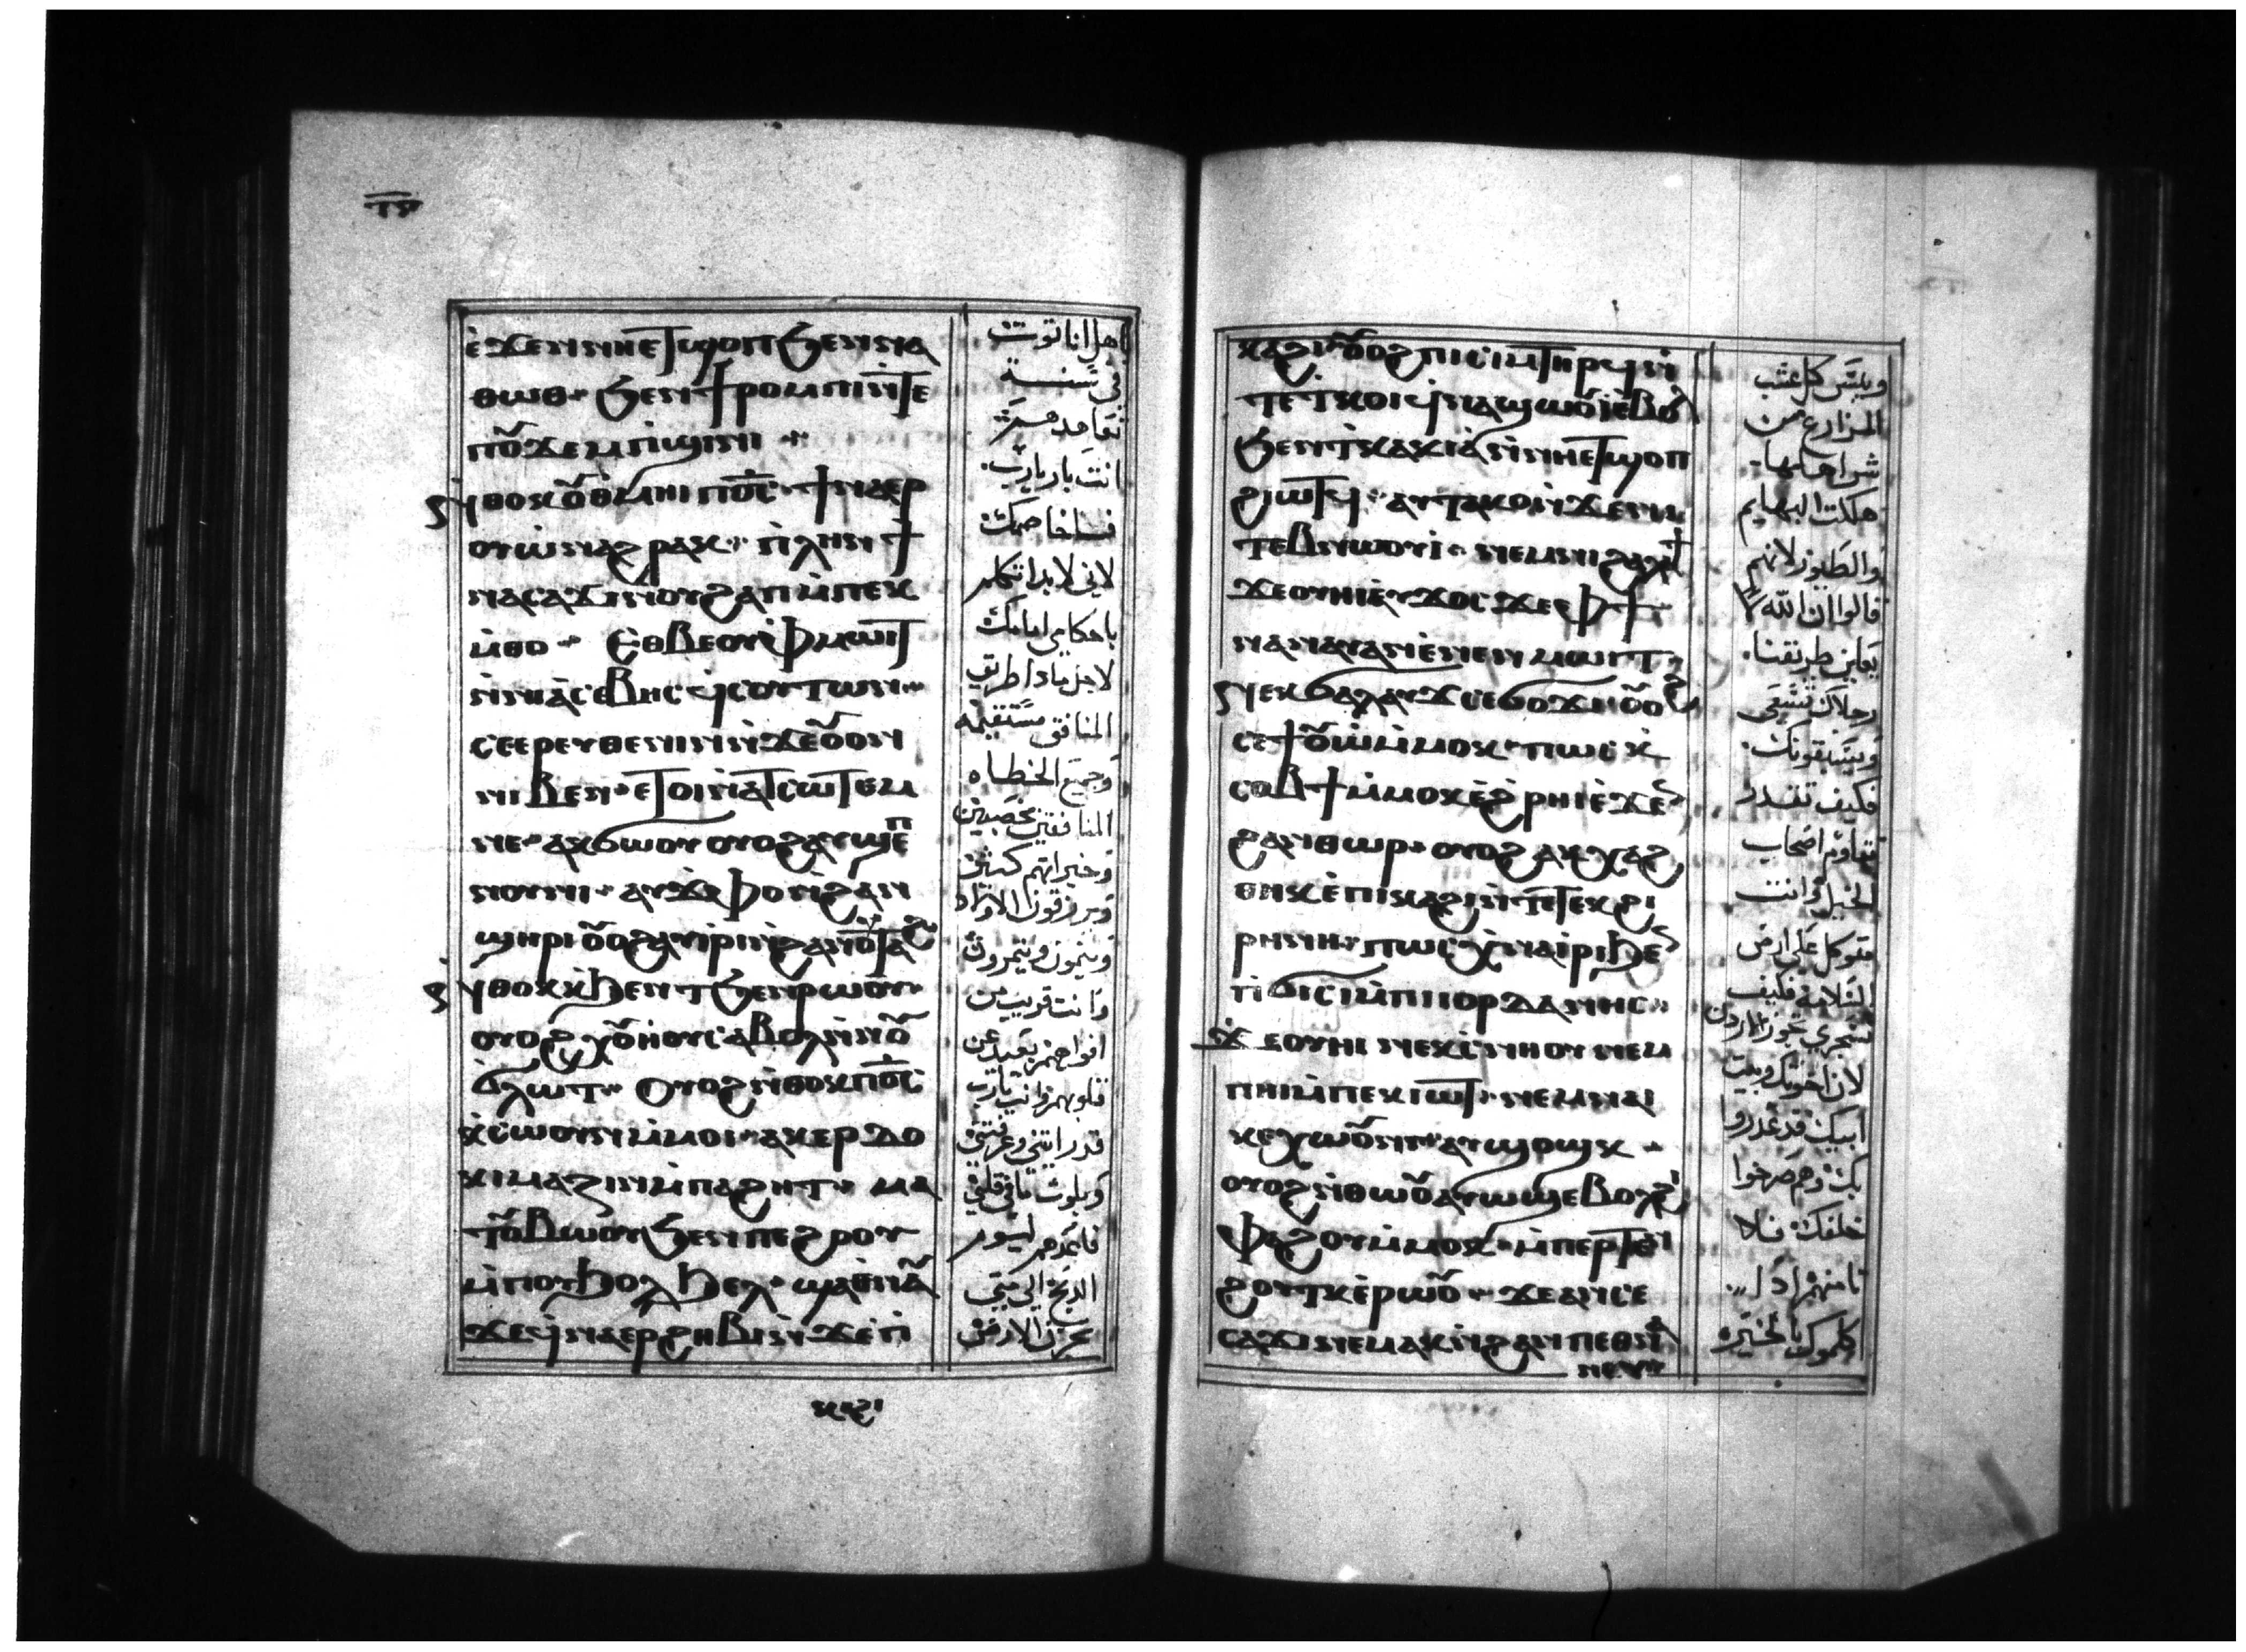 ⲧⲕ̅ⲅ̅
ⲉ̀ϫⲉⲛⲛⲏⲉⲧϣⲟⲡϧⲉⲛⲛⲁ
ⲑⲱⲑ· ϧⲉⲛϯⲣⲟⲙⲡⲓⲛ̀ⲧⲉ
ⲡⲟⲩϫⲉⲙⲡ̀ϣⲓⲛⲓ
ⲛ̀ⲑⲟⲕⲟⲩⲑⲙⲏⲓ ⲡϭ̅ⲥ̅· ϯⲛⲁⲉⲣ
ⲟⲩⲱ̀ⲛⲁϩⲣⲁⲕ· ⲡ̀ⲗⲏⲛ ϯ
ⲛⲁⲥⲁϫⲓⲛⲟⲩϩⲁⲡⲙ̀ⲡⲉⲕ
ⲙ̀ⲑⲟ· ⲉⲑⲃⲉⲟⲩⲫⲙⲱⲓⲧ
ⲛ̀ⲛⲏⲁⲥⲉⲃⲏⲥϥ̀ⲥⲟⲩⲧⲱⲛ·
ⲥⲉⲉⲣⲉⲩⲑⲉⲛⲏⲛⲛ̀ϫⲉⲟⲩⲟⲛ
ⲛⲓⲃⲉⲛ·ⲉⲧⲟⲓⲛ̀ⲁⲧⲥⲱⲧⲉⲙ
ⲛⲉ· ⲁⲕϭⲱⲟⲩ ⲟⲩⲟϩⲁⲩϣⲉⲡ
ⲛⲟⲩⲛⲓ· ⲁⲩϫⲫⲟⲛ̀ϩⲁⲛ
ϣⲏⲣⲓ ⲟⲩⲟϩⲁⲩⲓⲣⲓⲛ̀ϩⲁⲛⲟⲩⲧⲁϩ
ⲛ̀ⲑⲟⲕⲕ̀ϧⲉⲛⲧϧⲉⲛⲣⲱⲟⲩ·
ⲟⲩⲟϩⲭⲟⲩⲏⲟⲩⲥⲁⲃⲟⲗⲛ̀ⲛⲟⲩ
ϭⲗⲱⲧ· ⲟⲩⲟϩⲛ̀ⲑⲟⲕⲡϭ̅ⲥ̅
ⲕ̀ⲥⲱⲟⲩⲛⲙ̀ⲙⲟⲓ·ⲁⲕⲉⲣⲇⲟ
ⲕⲓⲙⲁⲍⲓⲛⲙ̀ⲡⲁϩⲏⲧ· ⲙⲁ
ⲧⲟⲩⲃⲱⲟⲩϧⲉⲛⲡⲉϩⲟⲟⲩ
ⲙ̀ⲡⲟⲩϧⲟⲗϧⲉⲗ· ϣⲁⲑⲛⲁⲩ
ϫⲉϥ̀ⲛⲁⲉⲣϩⲏⲃⲓⲛ̀ϫⲉⲡ̀
ⲕⲁϩⲓ
اهل اناتوت
في سنة
تعاهدهم
انت بار يارب
فسأخاصمك
لاني لابد اتكلم
باحكام امامك
لاجل ماذا طريق
المنافق مستقيمه
وجميع الخطاه
المنافقين مخصبين
وخيراتهم كثيره
ويرزقون الاولاد
وينمون ويثمرون
وانت قريب من
افواههم بعيد عن
قلوبهم وانت يارب
قد رايتني وعرفتني
وبلوت مافي قلبي
فاعدهم ليوم
الذبح الي متي
تحزن الارض
ⲕⲁϩⲓ·ⲟⲩⲟϩⲡⲓⲥⲓⲙⲧⲏⲣϥⲛ̀
ⲧⲉⲧ̀ⲕⲟⲓϥ̀ⲛⲁϣⲱⲟⲩⲓⲉ̀ⲃⲟⲗ
ϧⲉⲛⲧ̀ⲕⲁⲕⲓⲁ̀ⲛ̀ⲛⲏⲉⲧϣⲟⲡ
ϩⲓⲱⲧϥ· ⲁⲩⲧⲁⲕⲟⲛ̀ϫⲉⲛⲓ
ⲧⲉⲃⲛⲱⲟⲩⲓ· ⲛⲉⲙⲛⲓϩⲁⲗⲁϯ
ϫⲉⲟⲩⲏⲓⲉ̀ⲩϫⲟⲥϫⲉⲫϯ
ⲛⲁⲛⲁⲩⲁⲛⲉ̀ⲛⲉⲛⲙⲱⲓⲧ·
ⲛⲉⲕϭⲁⲗⲁⲩϫⲥⲉϭⲟϫⲓⲟⲩⲟϩ
ⲥⲉϯⲟⲩⲱ̀ⲙ̀ⲙⲟⲕ· ⲡⲱⲥ ⲕ̀
ⲥⲟⲃϯⲙ̀ⲙⲟⲕⲉ̀ϩⲣⲏⲓⲉ̀ϫⲉⲛ
ϩⲁⲛϩⲑⲱⲣ· ⲟⲩⲟϩ ⲁⲕⲭⲁϩ
ⲑⲏⲕⲉ̀ⲡⲓⲕⲁϩⲓⲛ̀ⲧⲉⲧⲉⲕϩⲓ
ⲣⲏⲛⲏ· ⲡⲱⲥⲭ̀ⲛⲁⲓⲣⲓϧⲉⲛ
ⲡϭⲓⲥⲓⲙ̀ⲡⲓⲓⲟⲣⲇⲁⲛⲏⲥ·
ϫⲉⲟⲩⲏⲓ ⲛⲉⲕⲥ̀ⲛⲏⲟⲩ ⲛⲉⲙ
ⲡⲏⲓⲙ̀ⲡⲉⲕⲓⲱⲧ· ⲛⲉⲙⲛⲁⲓ
ⲕⲉⲭⲱⲟⲩⲛⲓ·ⲁⲩϣⲟϣⲕ·
ⲟⲩⲟϩⲛ̀ⲑⲱⲟⲩⲁⲩⲱϣⲉⲃⲟⲗϩⲓ
ⲫⲁϩⲟⲩⲙ̀ⲙⲟⲕ· ⲙ̀ⲡⲉⲣⲧⲉⲛ
ϩⲟⲩⲧⲕⲉ̀ⲣⲱⲟⲩ· ϫⲉⲁⲛⲥⲉ
ⲥⲁϫⲓⲛⲉⲙⲁⲕⲛ̀ϩⲁⲛⲡⲉⲑⲛⲁ
ⲛⲉⲩ·
وييبس كل عشب
المزارع من
شر اهلها
هلكت البهايم
والطيور لانهم
قالوا ان الله لا
يعاين طريقنا
رجلاك تسعي
ويسبقونك
فكيف تقدر
تقاوم اصحاب
الخيل وانت
متوكل علي ارض
السلامة فكيف
تجري عبر الاردن
لان اخوتك وبيت
ابيك قد غدروا
بك وهم صرخوا
خلفك فلا
تامنهم اذا
كلموك بالخير